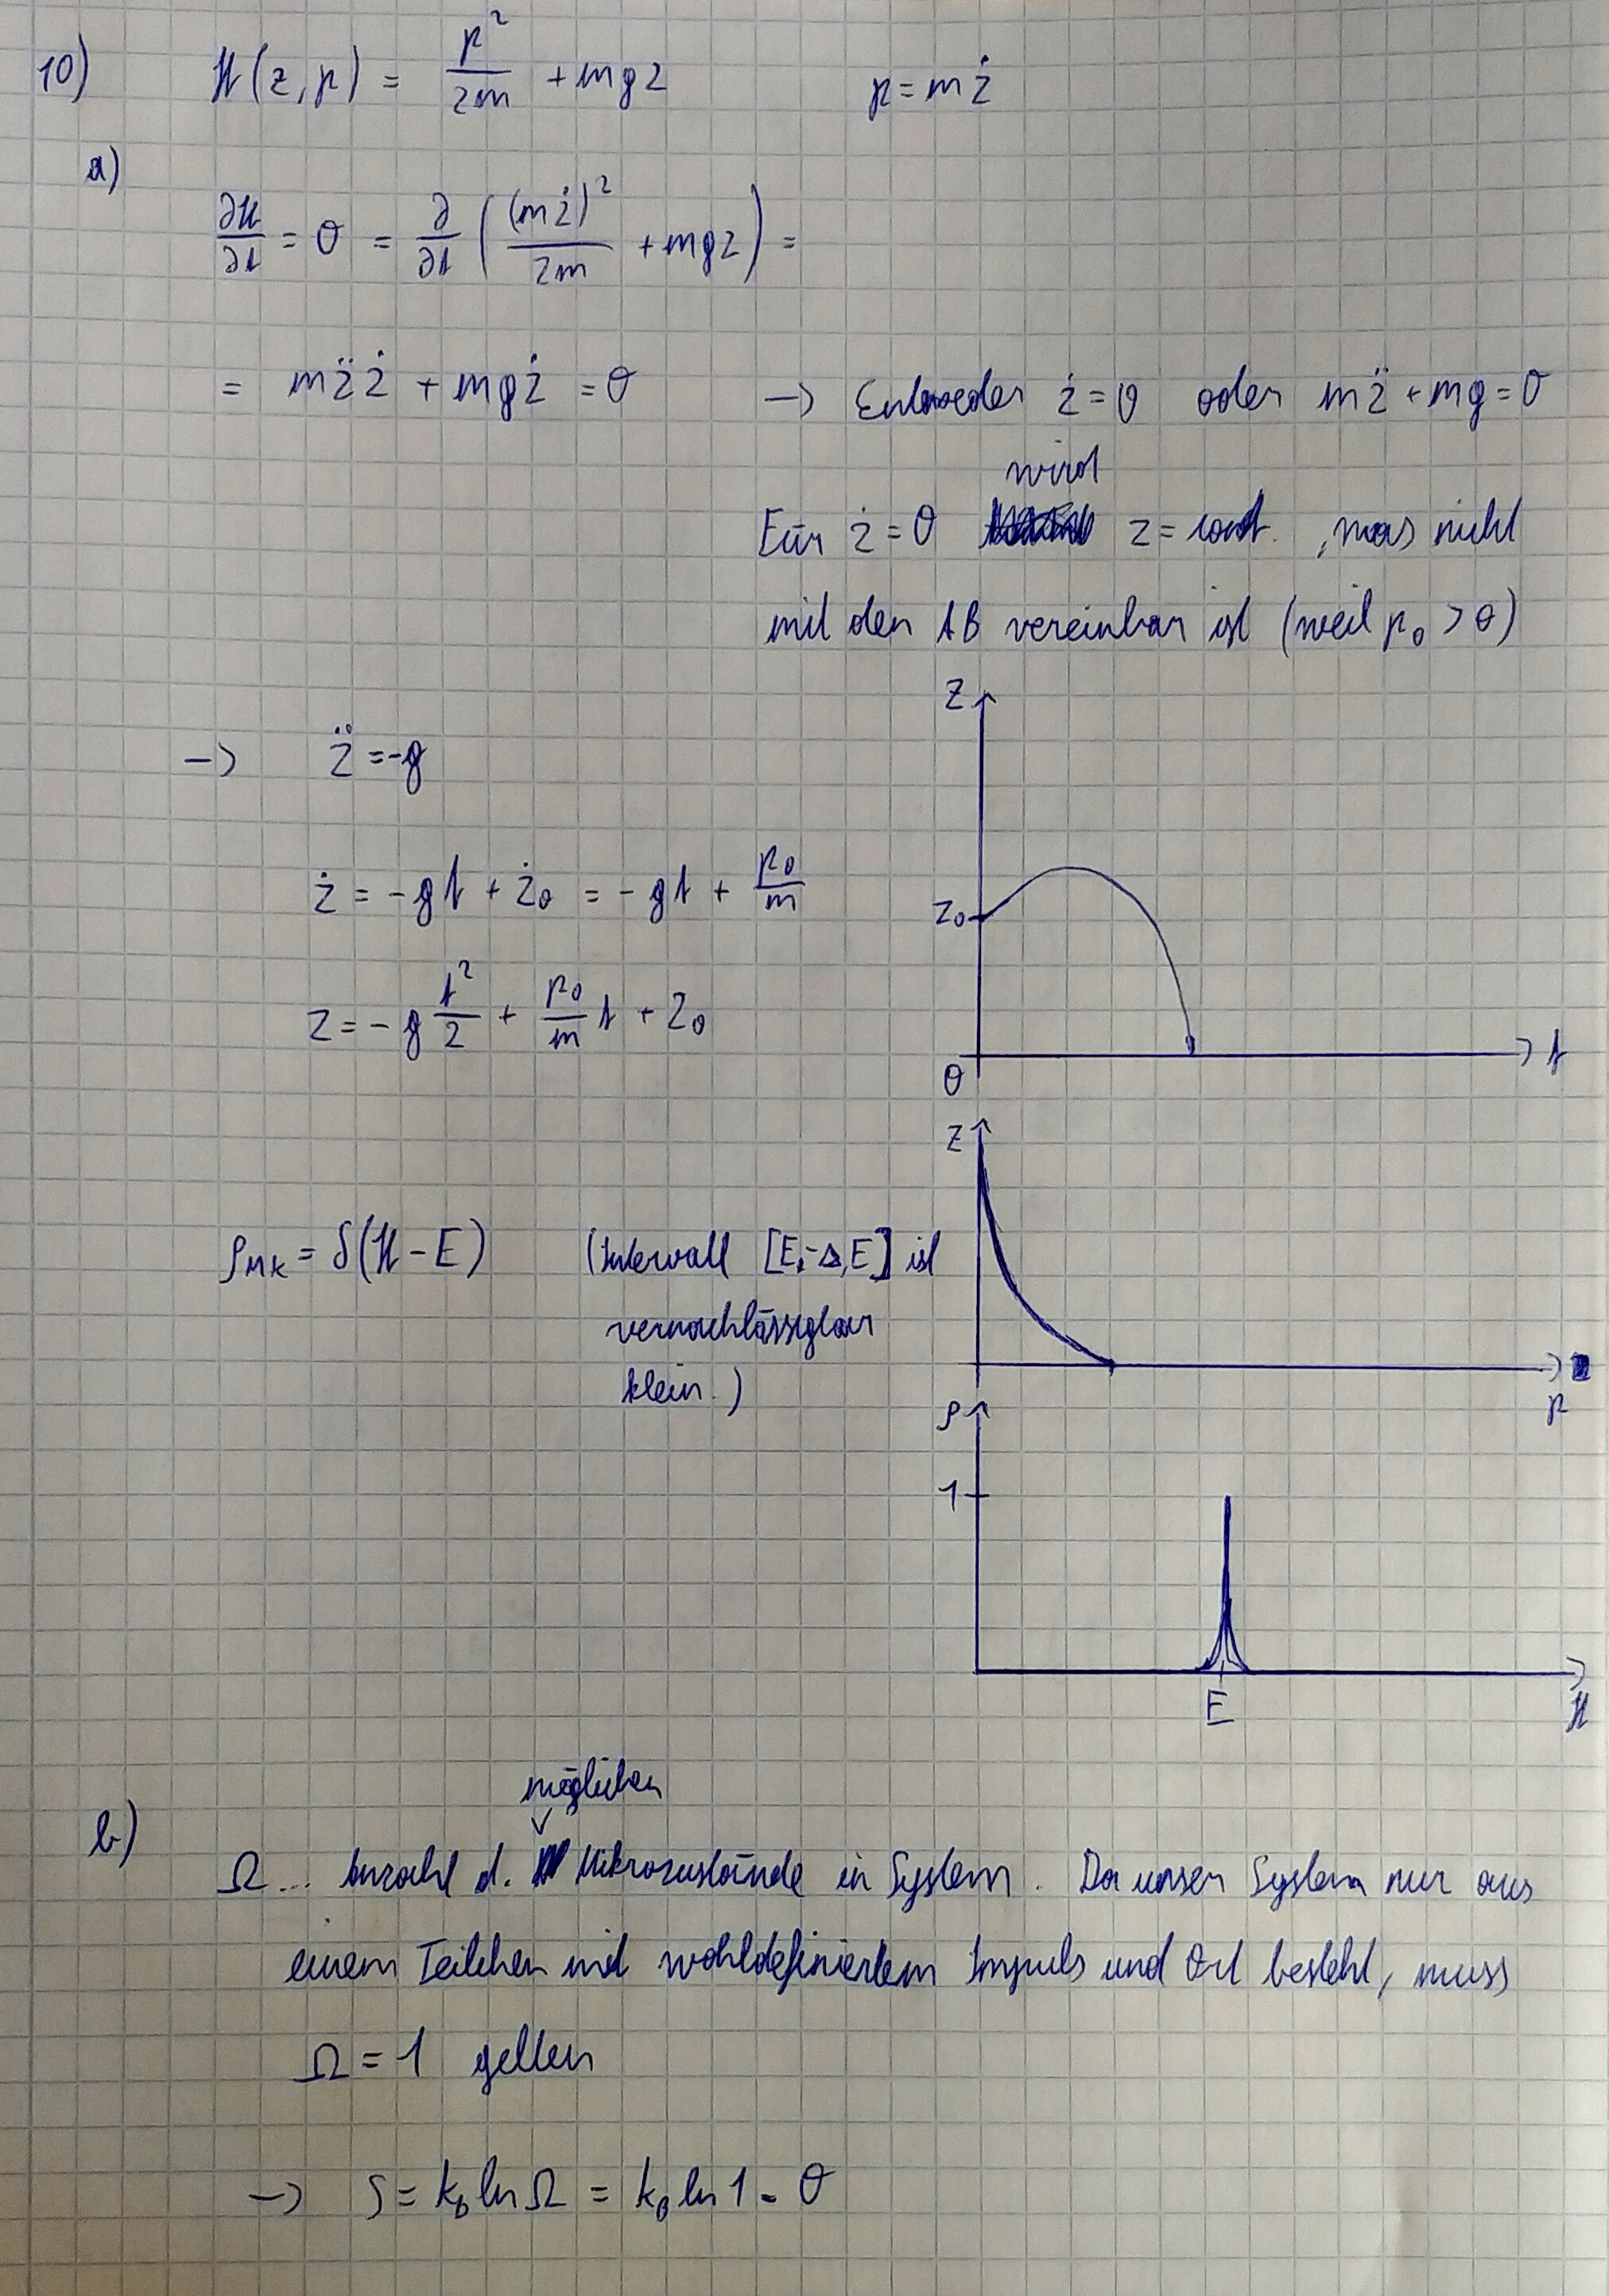 10) H(z,p) = p²/2m + mgz p = mż
a)
∂H/∂t = 0 = ∂/∂t ( (mż)²/2m + mgz ) =
= mz̈ż + mgż = 0 → Entweder ż = 0 oder mz̈ + mg = 0
wird
Für ż = 0 z = const. , was nicht
mit den AB vereinbar ist (weil p₀ > 0)
z
→ z̈ = -g
ż = -gt + ż₀ = -gt + p₀/m
z₀
z = -g t²/2 + p₀/m t + z₀
0 t
z
ρMK = δ(H - E) (Intervall [E-Δ,E] ist
vernachlässigbar
klein.)
p
ρ
1
E H
möglichen
b) Ω ... Anzahl d. Mikrozustände in System. Da unser System nur aus
einem Teilchen mit wohldefiniertem Impuls und Ort besteht, muss
Ω = 1 gelten
→ S = kB ln Ω = kB ln 1 = 0